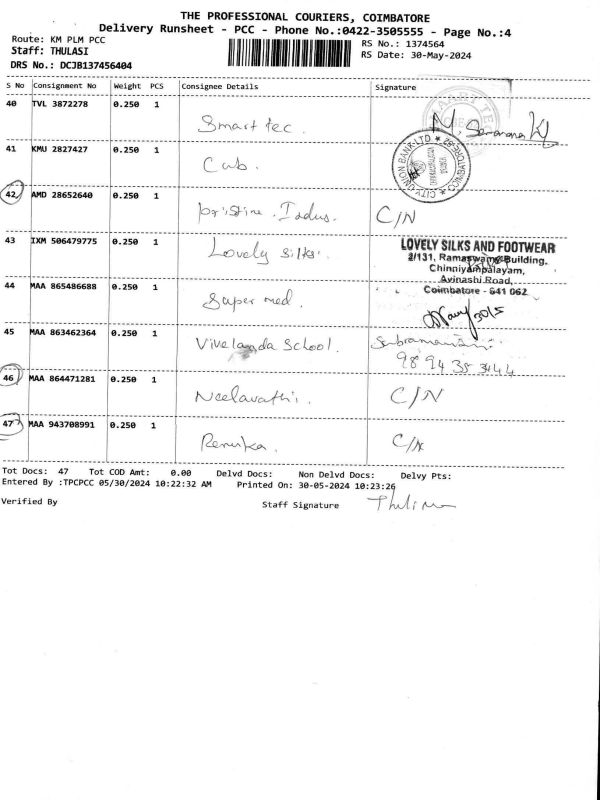 THE PROFESSIONAL COURIERS, COIMBATORE
Delivery Runsheet - PCC - Phone No.:0422-3505555 - Page No.:4
Route: KM PLM PCC
RS No.: 1374564
Staff: THULASI
RS Date: 30-May-2024
DRS No.: DCJB137456404
S No Consignment No Weight PCS Consignee Details Signature
40 TVL 3872278 0.250 1
Smart tec.
41 KMU 2827427 0.250 1
Cub.
CITY UNION BANK LTD
COIMBATORE
42 AMD 28652640 0.250 1
pristine. Indus. C/N
43 IXM 506479775 0.250 1
Lovely silks.
LOVELY SILKS AND FOOTWEAR
2/131, Ramaswamy Building,
Chinniyampalayam,
Avinashi Road,
Coimbatore - 641 062
44 MAA 865486688 0.250 1
Super med.
45 MAA 863462364 0.250 1
School.
46 MAA 864471281 0.250 1
Neelavathi. C/N
47 MAA 943708991 0.250 1
Renuka. C/N
Tot Docs: 47 Tot COD Amt: 0.00 Delvd Docs: Non Delvd Docs: Delvy Pts:
Entered By :TPCPCC 05/30/2024 10:22:32 AM Printed On: 30-05-2024 10:23:26
Verified By
Staff Signature